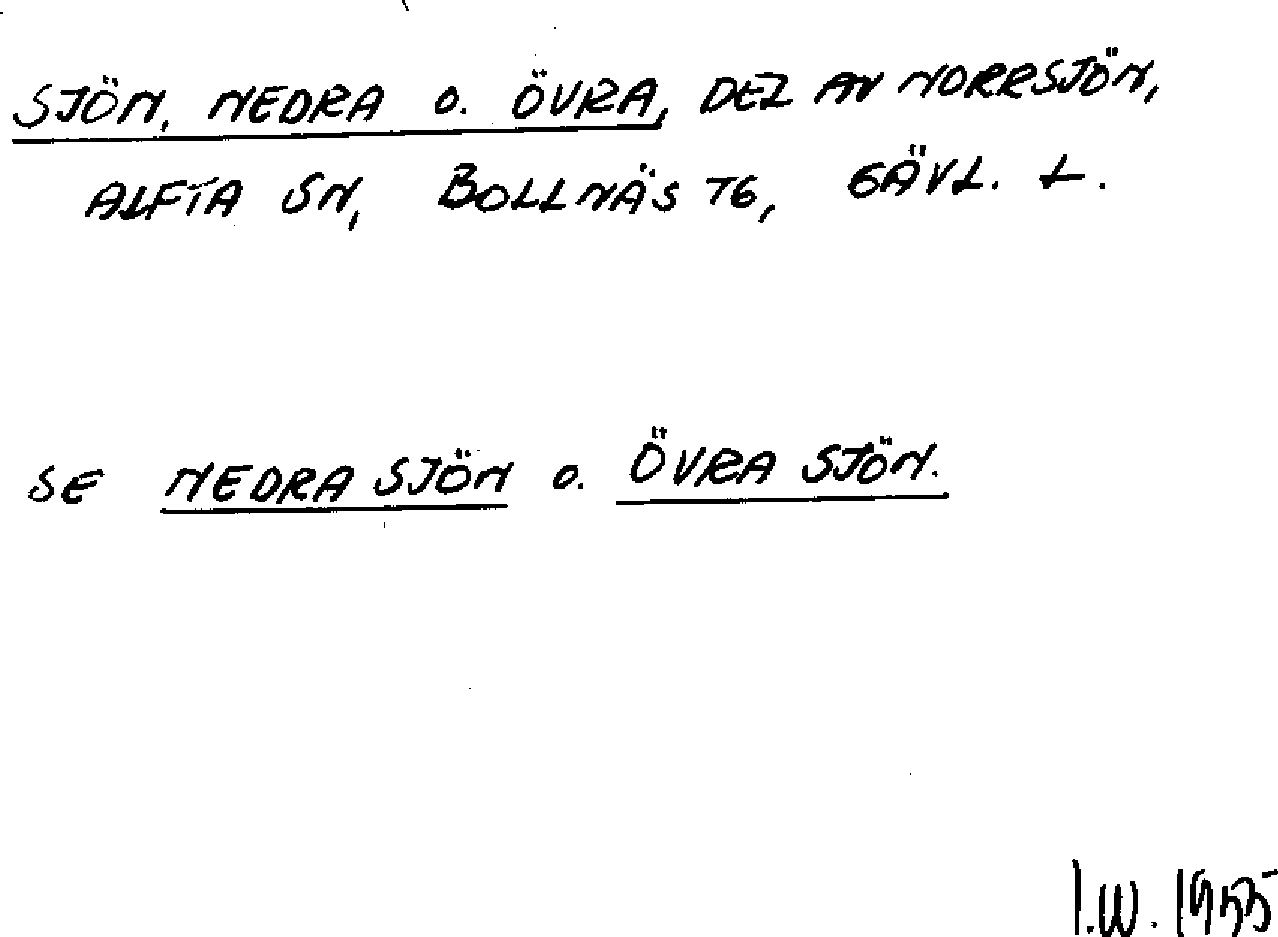 SJÖN, NEDRA O. ÖVRA, DEL AV NORRSJÖN,
ALFTA SN, BOLLNÄS TG, GÄVL. L.
SE NEDRA SJÖN O. ÖVRA SJÖN.
I.W. 1955